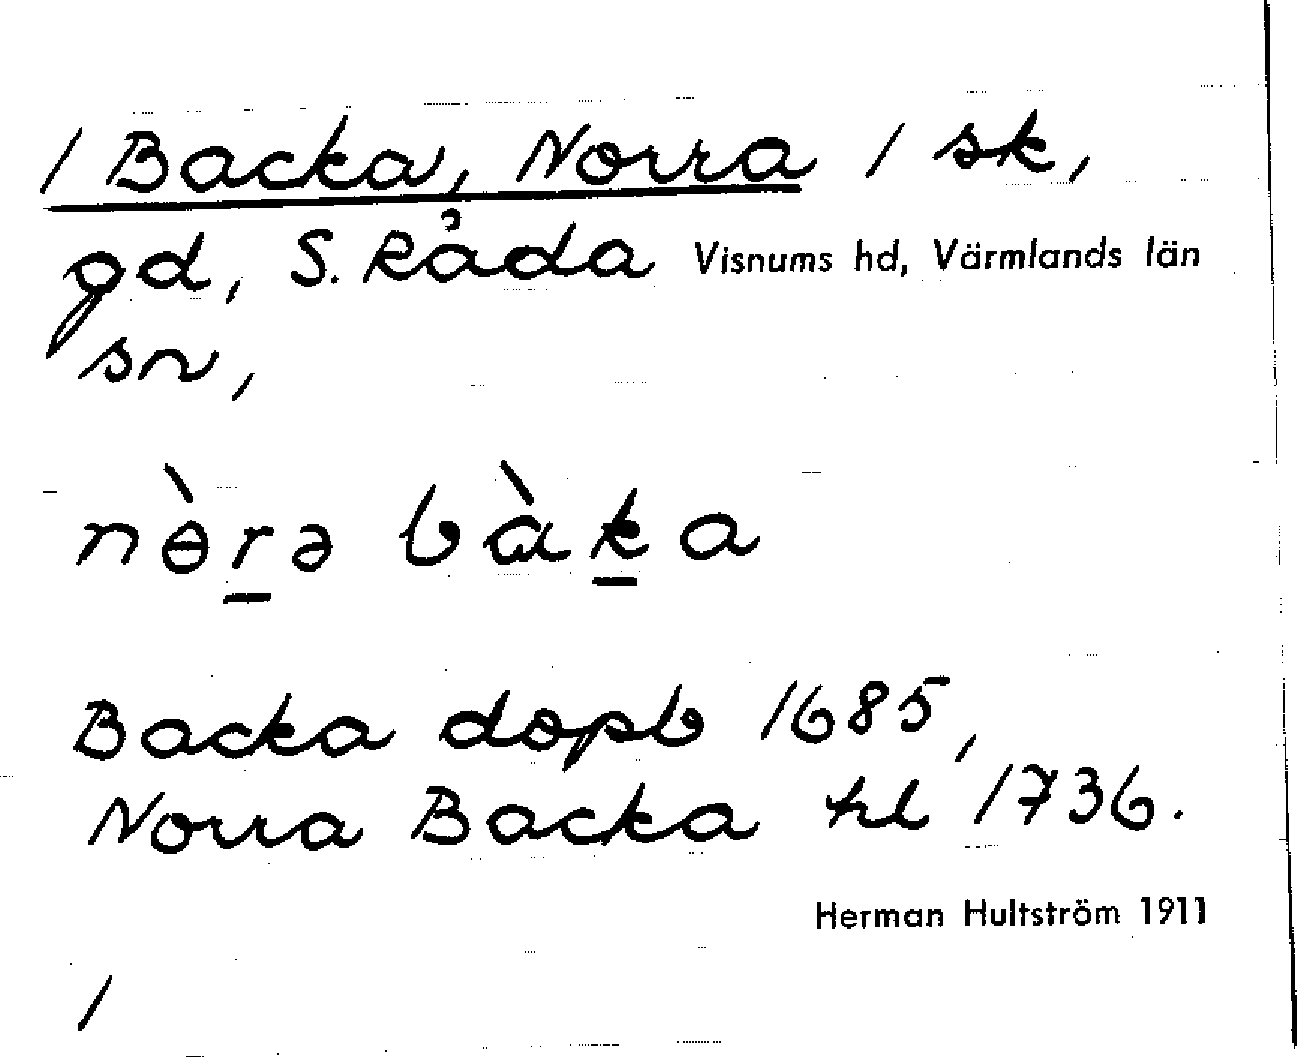 / Backa, Norra / sk,
gd, S. Råda Visnums hd, Värmlands län
sn,
nɵ̀r̲ə bàk̲a
Backa dopb 1685,
Norra Backa hl 1736.
Herman Hultström 1911
/